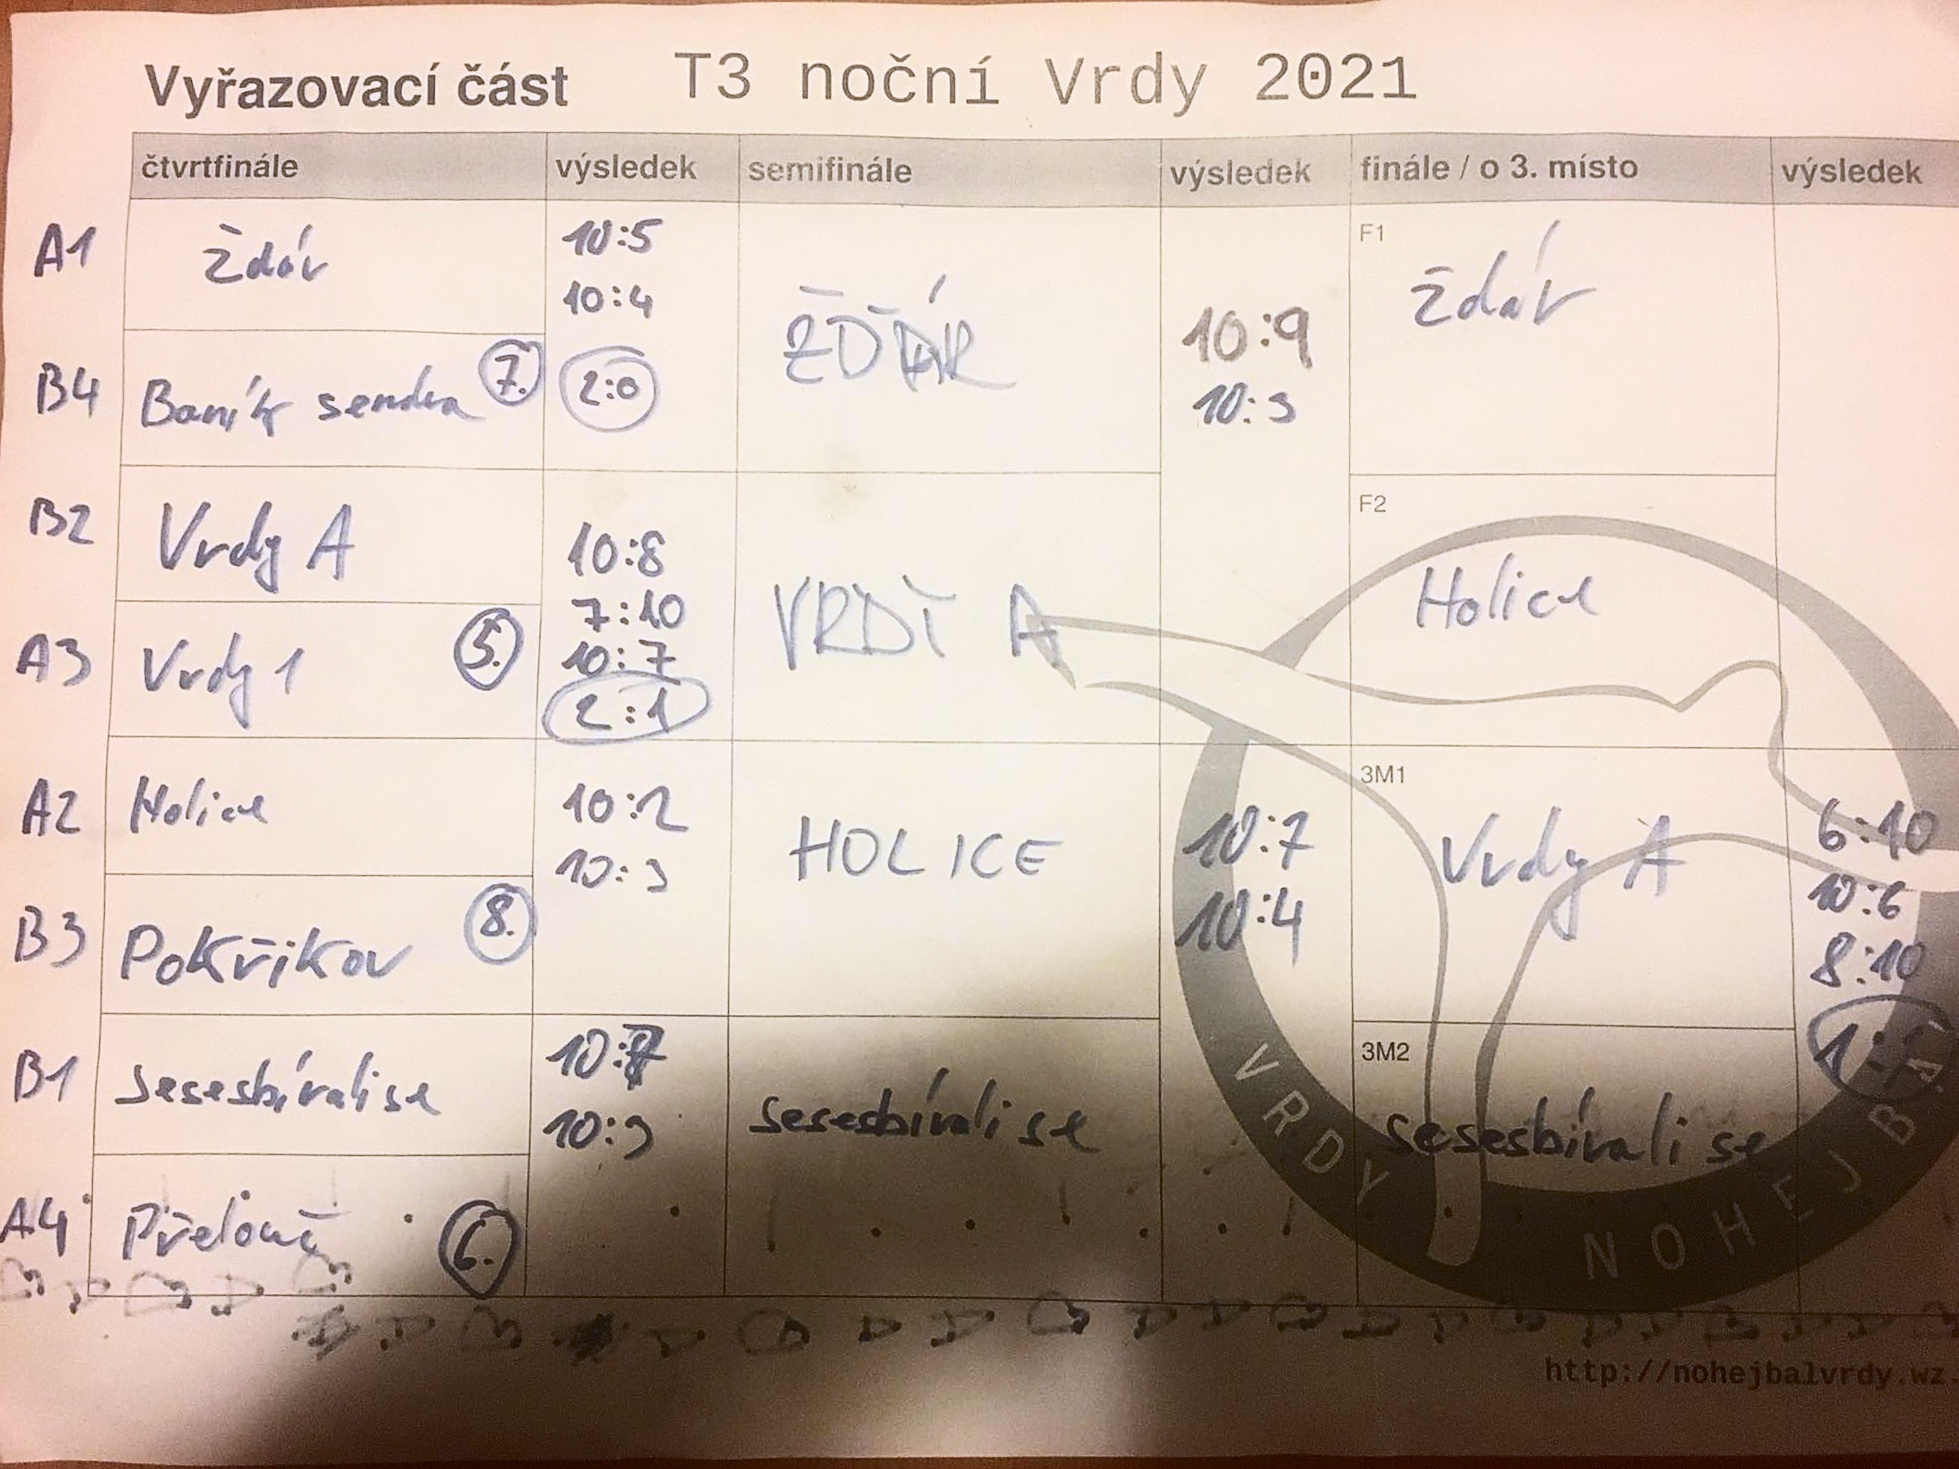 Vyřazovací část T3 noční Vrdy 2021
čtvrtfinále výsledek semifinále výsledek finále / o 3. místo výsledek
A1 Ždár
10:5
10:4
B4 Baník sendra 7.
2:0
ŽĎÁR
10:9
10:3
F1
Ždár
B2 Vrdy A
10:8
7:10
A3 Vrdy 1 5.
10:7
2:1
VRDY A
F2
Holice
A2 Holice
10:2
10:3
B3 Pokřikov 8.
HOLICE
10:7
10:4
3M1
Vrdy A
6:10
10:6
8:10
B1 Sesesbírali se
10:7
10:3
A4 Přelouč 6.
Sesesbírali se
3M2
Sesesbírali se
VRDY NOHEJBA
http://nohejbalvrdy.wz.